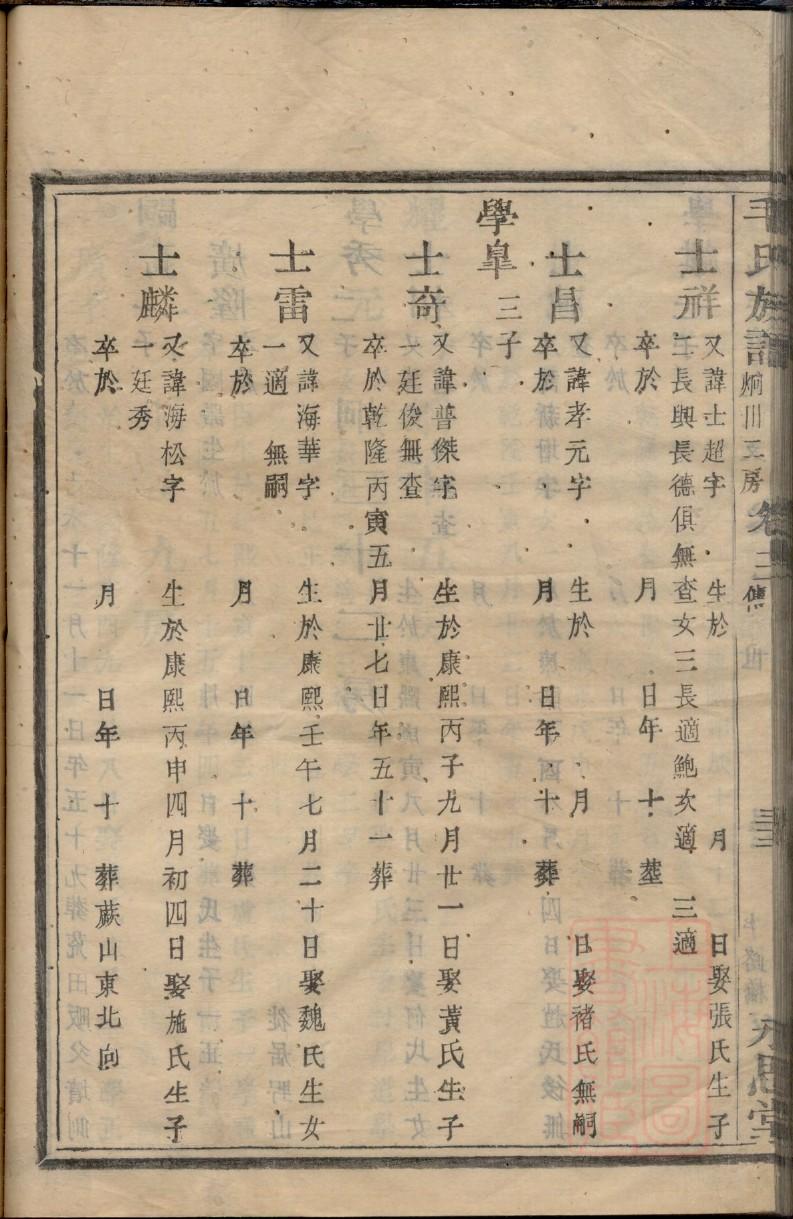 毛氏族譜 炯川三房 卷三 雋 世 永思堂
士祥 又諱士超字 生於 月 日娶張氏生子
二長興長德俱無查女三長適鮑次適 三適
卒於 月 日年 十 塟
士昌 又諱孝元字 生於 月 日娶褚氏無嗣
卒於 月 日年 十 葬
學皐 三子
士奇 又諱普傑字 生於康熙丙子九月廿一日娶黃氏生子
一廷俊無查
卒於乾隆丙寅五月廿七日年五十一葬
士雷 又諱海華字 生於康熙壬午七月二十日娶魏氏生女
一適 無嗣
卒於 月 日年 十 葬
士麟 又諱海松字 生於康熙丙申四月初四日娶施氏生子
一廷秀
卒於 月 日年 十 葬蕨山東北向